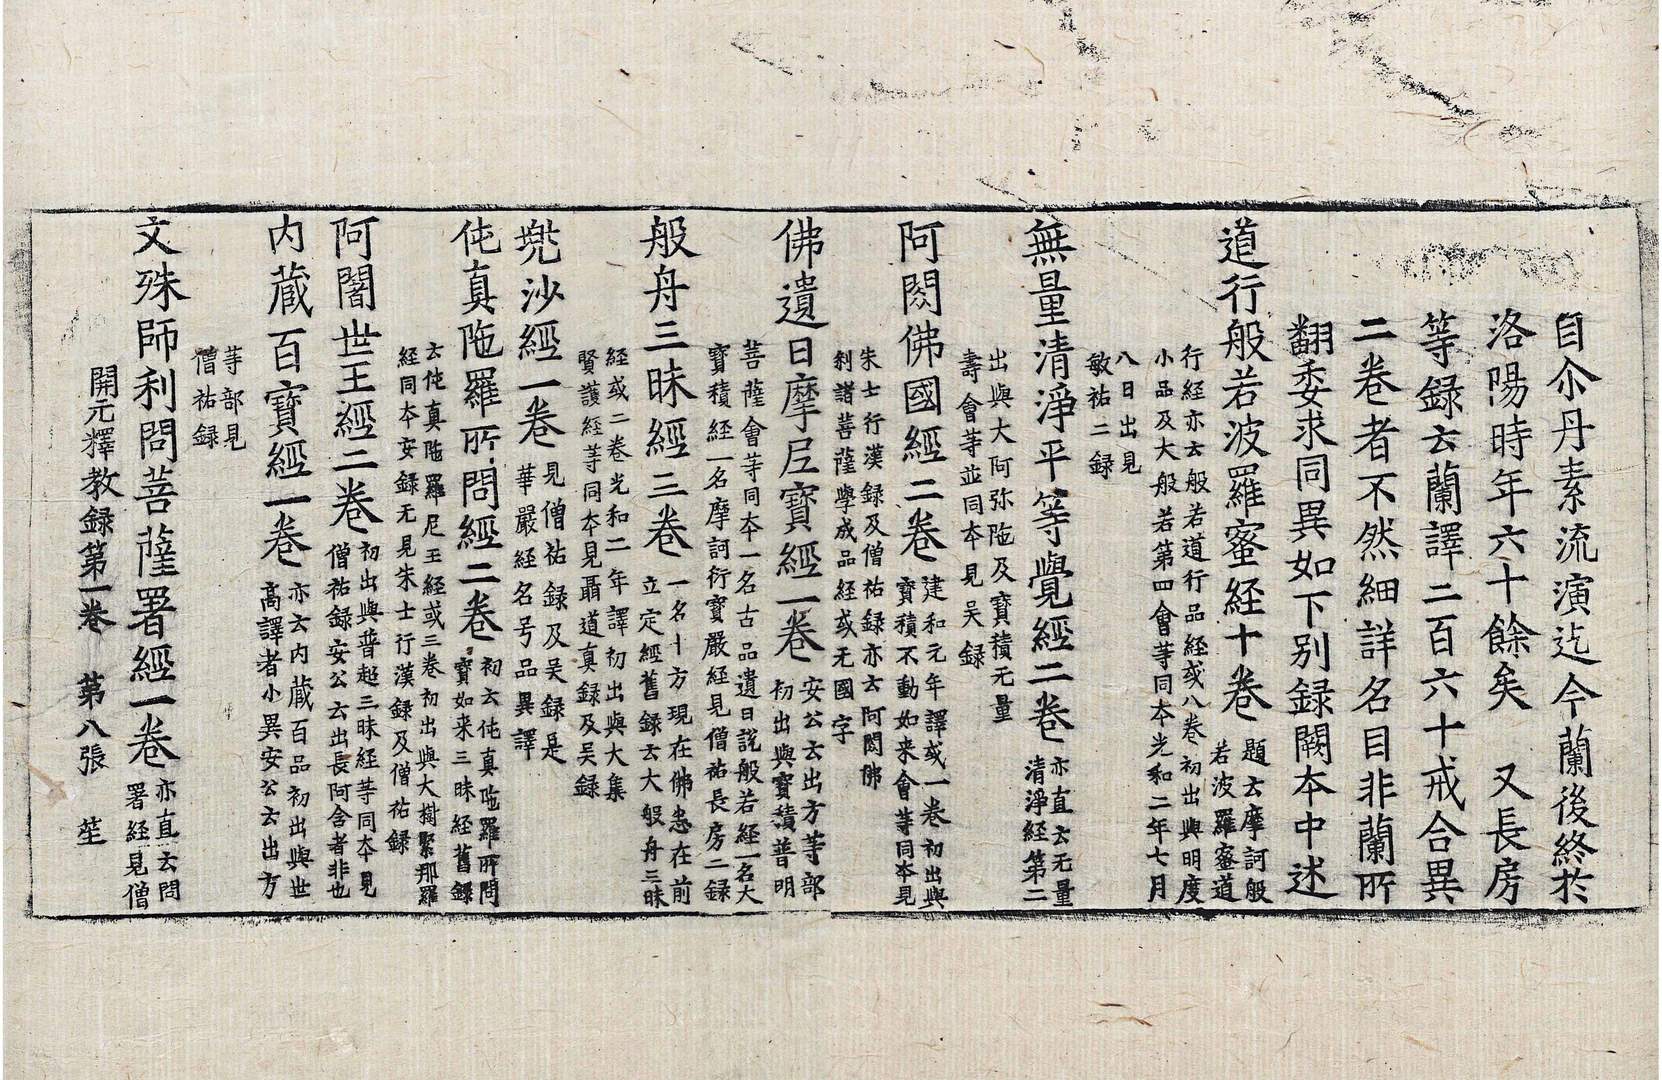 自尒丹素流演迄今蘭後終於
洛陽時年六十餘矣　又長房
等録云蘭譯二百六十戒合異
二卷者不然細詳名目非蘭所
翻委求同異如下别録闕本中述
道行般若波羅蜜経十卷 題云摩訶般
若波羅蜜道
行経亦云般若道行品経或八卷初出與明度
小品及大般若第四會等同本光和二年七月
八日出見
敏祐二録
無量清淨平等覺經二卷 亦直云无量
清淨經第二
出與大阿弥陁及寳積无量
壽會等並同本見吴録
阿閦佛國經二卷 建和元年譯或一卷初出與
寳積不動如来會等同本見
朱士行漢録及僧祐録亦云阿閦佛
刹諸菩薩學成品経或无國字
佛遺日摩尼寳經一卷 安公云出方等部
初出與寳積普明
菩薩會等同本一名古品遺日說般若経一名大
寳積経一名摩訶衍寳嚴経見僧祐長房二録
般舟三昧經三卷 一名十方現在佛悉在前
立定経舊録云大般舟三昧
経或二卷光和二年譯初出與大集
賢護経等同本見聶道真録及吴録
兠沙經一卷 見僧祐録及吴録是
華嚴経名号品異譯
伅真陁羅所問經二卷 初云伅真陁羅所問
寳如来三昧経舊録
云伅真陁羅尼王経或三卷初出與大樹緊那羅
経同本安録无見朱士行漢録及僧祐録
阿闍世王經二卷 初出與普超三昧経等同本見
僧祐録安公云出長阿含者非也
内蔵百寳經一卷 亦云内蔵百品初出與世
髙譯者小異安公云出方
等部見
僧祐録
文殊師利問菩薩署經一卷 亦直云問
署経見僧
開元釋教録第一卷　第八張　笙